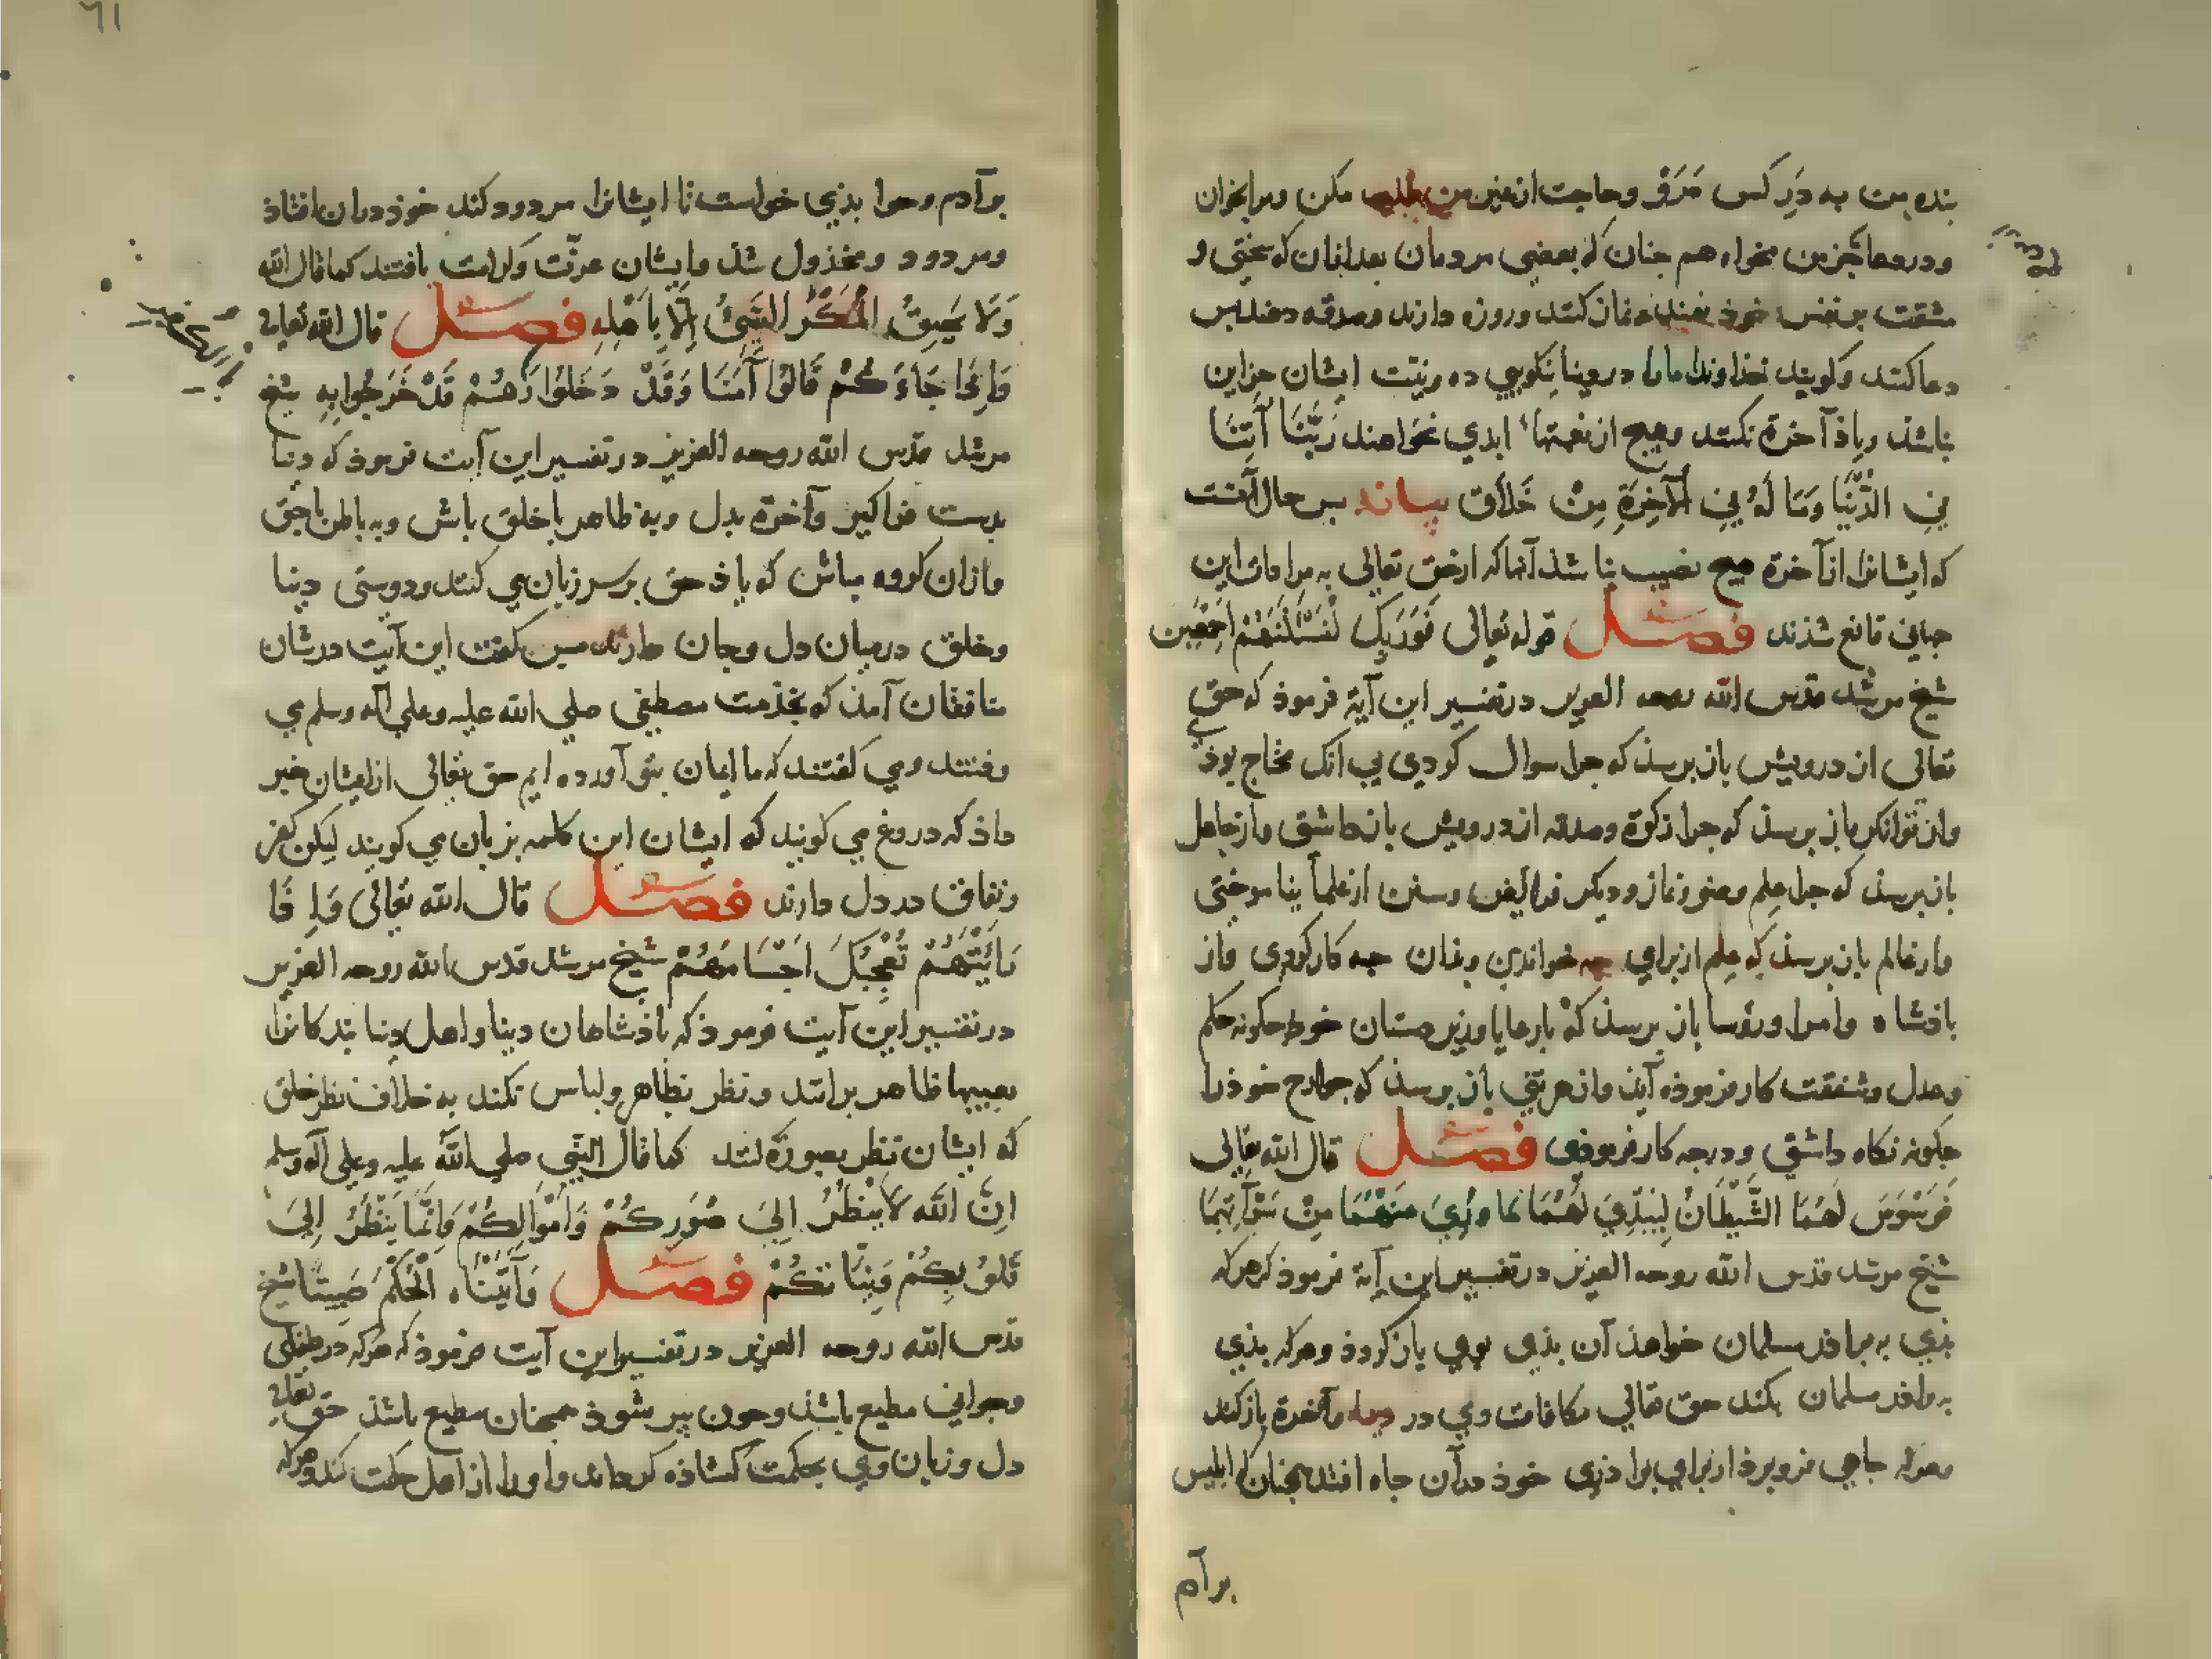 بنده من به در کس مرو و حاجت از غیر من طلب مکن و مرا بخوان
و در دعا بجز من مخواه هم چنان که بعضی مردمان بعد از ان که سختی و
مشقت بر نفس خوذ نهند و نماز کنند و روزه دارند و صدقه دهند بس
دعا کنند و کویند خذاوندا ما را در دنیا نیکویی ده و نیت ایشان جز این
نباشذ و یاذ آخرة نکنند و هیچ از نعمتهاء ابدی نخواهند رَبَّنَا آتِنَا
فِي الدُّنْيَا وَمَا لَهُ فِي الْآخِرَةِ مِنْ خَلَاقٍ بس حال آنست
که ایشانرا از آخرة هیچ نصیب نباشذ آنها که از حق تعالی به مرادات این
جهانی قانع شذند فصل قوله تعالی فَوَرَبِّكَ لَنَسْئَلَنَّهُمْ أَجْمَعِينَ
شیخ مرشد قدس الله روحه العزیز در تفسیر این آیة فرموذ که حق
تعالی از درویش باز برسذ که جرا سوال کردی بی انک محتاج بوذی
واز توانکر باز برسذ که جرا زکوة و صدقه از درویش باز داشتی و از جاهل
باز برسذ که جرا علم وضو و نماز و دیکر فرایض و سنن از علما نیاموختی
و از عالم باز برسذ که علم از برای جه خواندی و بذان جه کار کردی و از
باذشاه و امرا و رؤسا باز برسذ که با رعایا و زیر دستان خوذ جکونه حکم
و عدل و شفقت کار فرموذه آیذ و از هر تنی باز برسذ که جوارح خوذ را
جکونه نکاه داشتی و درجه کار فرموذی فصل قال الله تعالی
فَوَسْوَسَ لَهُمَا الشَّيْطَانُ لِيُبْدِيَ لَهُمَا مَا وُرِيَ عَنْهُمَا مِنْ سَوْآتِهِمَا
شیخ مرشد قدس الله روحه العزیز در تفسیر این آیة فرموذ که هر که
بذی به براذر مسلمان خواهذ آن بذی بوی باز کردذ و هر که بذی
به براذر مسلمان بکند حق تعالی مکافات وی در دنیا و آخرة باز کند
و هر که جاهی فرو برذ از برای براذری خوذ در آن جاه افتد همچنان که ابلیس
بر آم
٦١
بر آدم و حوا بذی خواست تا ایشانرا مردود کند خوذ در ان افتاذ
و مردود و مخذول شذ و ایشان عزّت و کرامت یافتند کما قال الله
وَلَا يَحِيقُ الْمَكْرُ السَّيِّئُ إِلَّا بِأَهْلِهِ فصل قال الله تعالی
وَإِذَا جَاءَوكُمْ قَالُوا آمَنَّا وَقَدْ دَخَلُوا وَهُمْ قَدْ خَرَجُوا بِهِ شیخ
مرشد قدس الله روحه العزیز در تفسیر این آیت فرموذ که دنیا
بدست فرا کیر و آخرة بدل و به ظاهر با خلق باش و به باطن با حق
و از ان کروه مباش که یاذ حق بر سر زبان می کنند و دوستی دنیا
و خلق در میان دل و جان دارند کفت این آیت در شان
منافقان آمذ که بخذمت مصطفی صلی الله علیه و علی آله وسلم می
رفتند و می کفتند که ما ایمان بتو آورده ایم حق تعالی از ایشان خبر
داذ که دروغ می کویند که ایشان این کلمه بزبان می کویند لیکن کفر
و نفاق در دل دارند فصل قال الله تعالی وَإِذَا
رَأَيْتَهُمْ تُعْجِبُكَ أَجْسَامُهُمْ شیخ مرشد قدس الله روحه العزیز
در تفسیر این آیت فرموذ که باذشاهان دنیا و اهل دنیا بندکانرا
بعیبها ظاهر برانند و نظر بظاهر و لباس نکنند به خلاف نظر خلق
که ایشان نظر بصورة کنند کما قال النبی صلی الله علیه و علی آله وسلم
إِنَّ اللَّهَ لَا يَنْظُرُ إِلَى صُوَرِكُمْ وَأَمْوَالِكُمْ وَإِنَّمَا يَنْظُرُ إِلَى
قُلُوبِكُمْ وَنِيَّاتِكُمْ فصل وَآتَيْنَاهُ الْحُكْمَ صَبِيًّا شیخ
قدس الله روحه العزیز در تفسیر این آیت فرموذ که هر که در طفلی
و جوانی مطیع باشذ و جون پیر شوذ همچنان مطیع باشذ حق تعالی
دل و زبان وی بحکمت کشاذه کرداند و او را از اهل حکمت کند و هر که